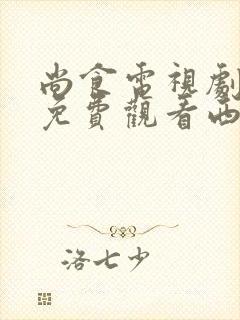 尚食電視劇
免費觀看西
洛七少